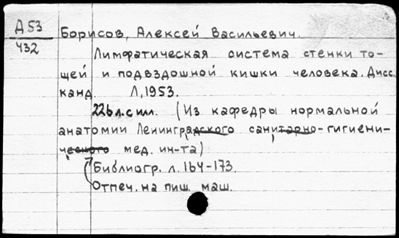 Д53
432
Борисов, Алексей Васильевич.
Лимфатическая система стенки то-
щей и подвздошной кишки человека. Дисс.
канд. Л, 1953.
226 л. с илл. (Из кафедры нормальной
анатомии Ленинградского санитарно-гигиени-
ческого мед. ин-та)
(Библиогр. л. 164-173.
Отпеч. на пиш. маш.